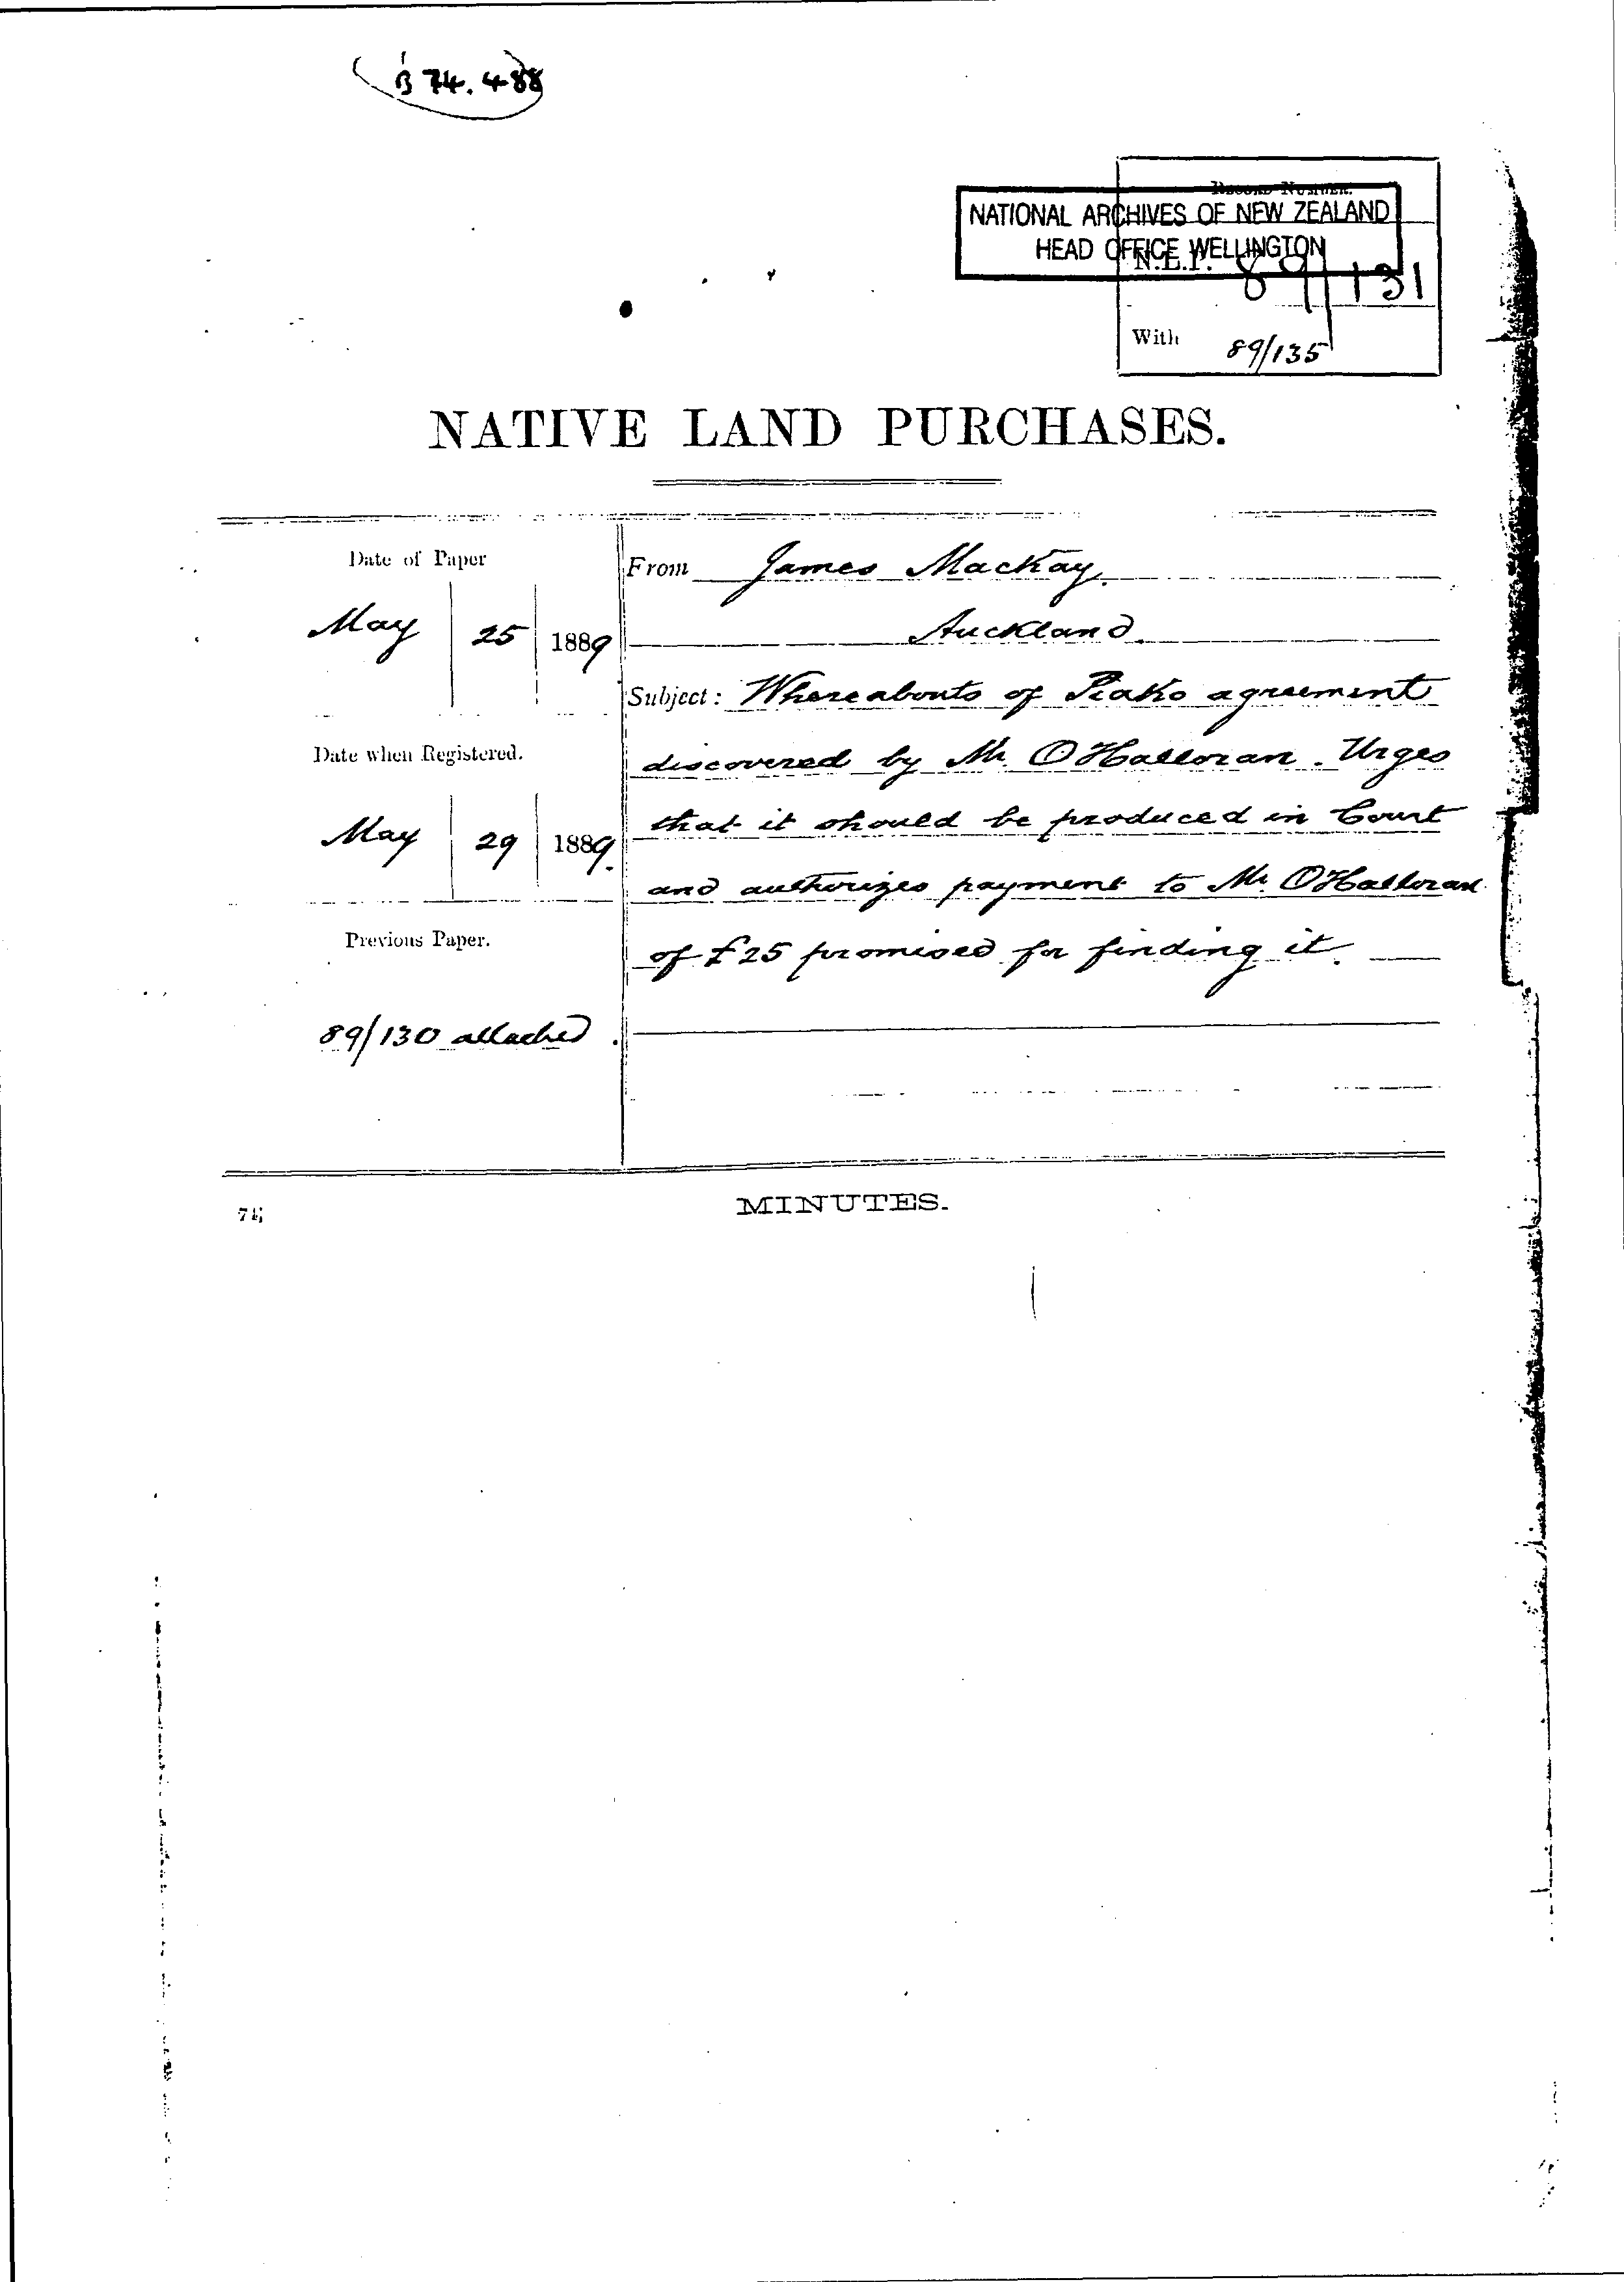 B 74.488
RECORD NUMBER.
NATIONAL ARCHIVES OF NEW ZEALAND
HEAD OFFICE WELLINGTON
N.L.P. 89/131
With 89/135
NATIVE LAND PURCHASES.
Date of Paper
May 25 1889
From James Mackay,
Auckland.
Subject: Whereabouts of Piako agreement
discovered by Mr. O'Halloran. Urges
that it should be produced in Court
and authorizes payment to Mr O'Halloran
of £25 promised for finding it.
Date when Registered.
May 29 1889.
Previous Paper.
89/130 attached.
MINUTES.